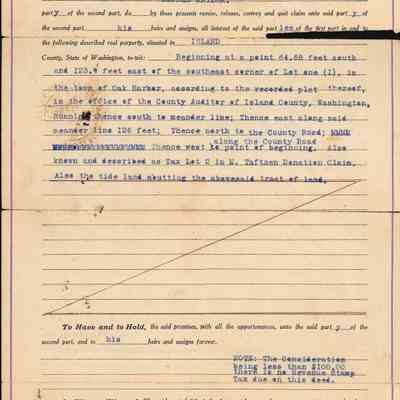 party of the second part, do by these presents remise, release, convey and quit claim unto said party of
the second part his heirs and assigns, all interest of the said part ies of the first part in and to
the following described real porperty, situated in ISLAND
County, State of Washington, to-wit: Beginning at a point 64.68 feet south
and 123.9 feet east of the southeast corner of Lot one (1), in
the town of Oak Harbor, according to the recorded plat thereof,
in the office of the County Auditor of Island County, Washington,
Running thence south to meander line; Thence east along said
meander line 126 feet; Thence north to the County Road;
along the County Road
Thence west to point of beginning. Also
known and described as Tax Lot 2 in M. Taftzen Donation Claim,
Also the tide land abutting the abovesaid tract of land.
To Have and to Hold, the said premises, with all the appurtenances, unto the said party of the
second part, and to his heirs and assigns forever.
NOTE: The Consideration
being less than $100.00
there is no Revenue Stamp
Tax due on this deed.